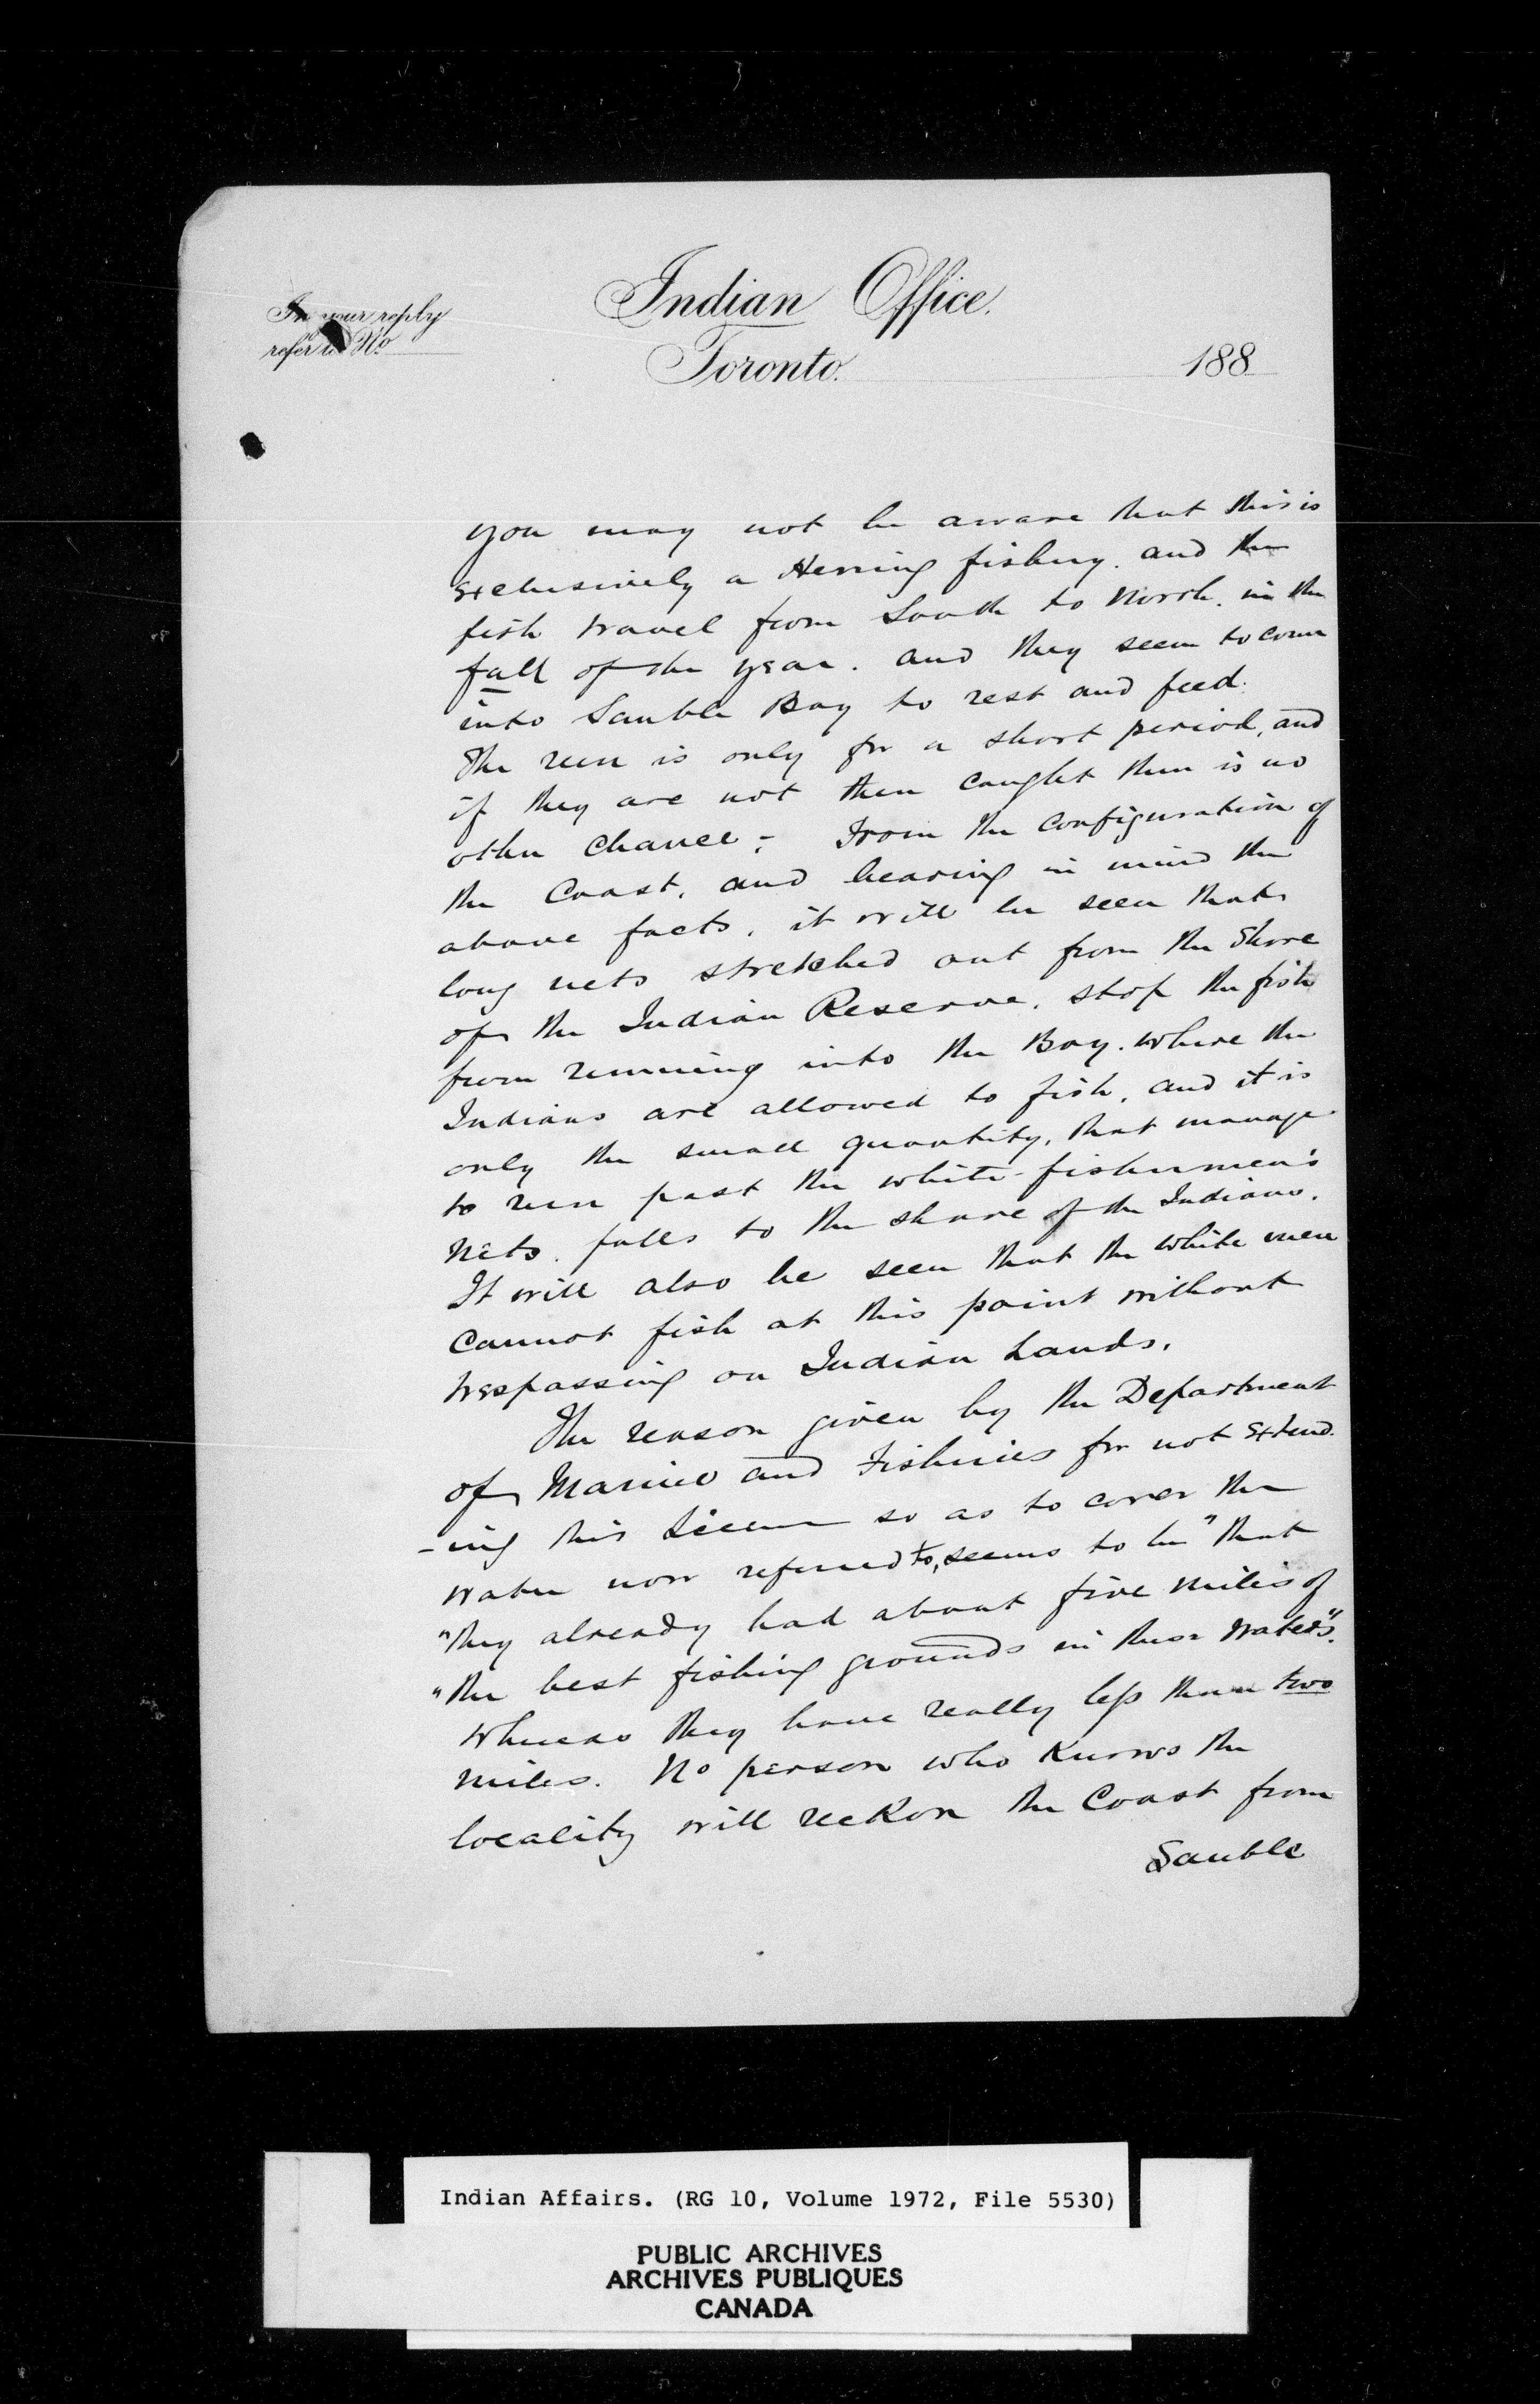 In your reply
refer to No.
Indian Office.
Toronto. 188
you may not be aware that this is
exclusively a Herring fishery. and the
fish travel from South to North. in the
fall of the year. and they seem to come
into Sauble Bay to rest and feed.
The run is only for a short period, and
if they are not then caught there is no
other chance; From the configuration of
the Coast, and bearing in mind the
above facts, it will be seen that
long nets stretched out from the Shore
of the Indian Reserve. stop the fish
from running into the Bay. where the
Indians are allowed to fish, and it is
only the small quantity, that manage
to run past the white-fishermen's
nets. falls to the share of the Indians.
It will also be seen that the white men
cannot fish at this point without
trespassing on Indian Lands.
The reason given by the Department
of Marine and Fisheries for not extend
-ing this License so as to cover the
water now referred to, seems to be "that
"they already had about five miles of
"the best fishing grounds in these waters".
Whereas they have really less than two
miles. No person who knows the
locality will reckon the Coast from
Sauble
Indian Affairs. (RG 10, Volume 1972, File 5530)
PUBLIC ARCHIVES
ARCHIVES PUBLIQUES
CANADA